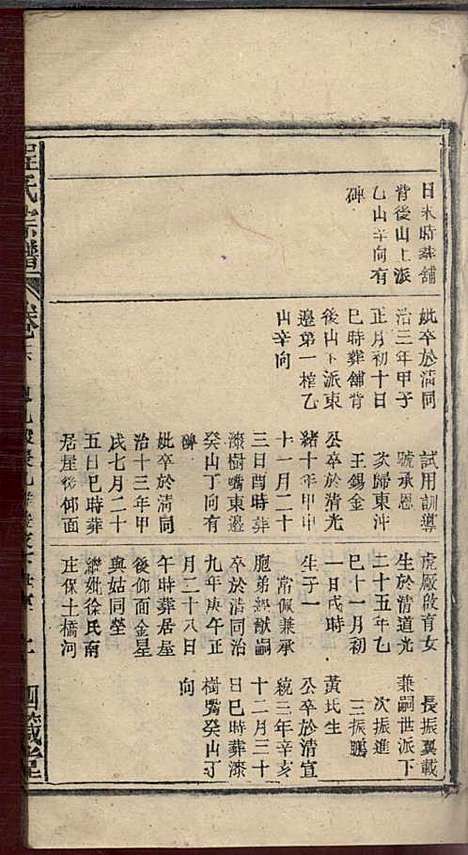 日未時葬舖
背後山上派
乙山辛向有
碑
妣卒於清同
治三年甲子
正月初十日
巳時葬舖背
後山下派東
邊第一榨乙
山辛向
試用訓導
號承恩
次歸東沖
王錫金
公卒於清光
緒十年甲申
十一月二十
三日酉時葬
漆樹嘴東邊
癸山丁向有
碑
妣卒於清同
治十三年甲
戌七月二十
五日巳時葬
居屋後仰面
虎廠啟育女
生於清道光
二十五年乙
巳十一月初
一日戌時
生子一
常佩兼承
胞弟經猷嗣
卒於清同治
九年庚午正
月二十八日
午時葬居屋
後仰面金星
與姑同塋
繼妣徐氏南
庄保土橋河
長振翼載
兼嗣世派下
次振進
三振鵬
黃氏生
公卒於清宣
統三年辛亥
十二月三十
日巳時葬漆
樹嘴癸山丁
向
程氏宗譜
卷